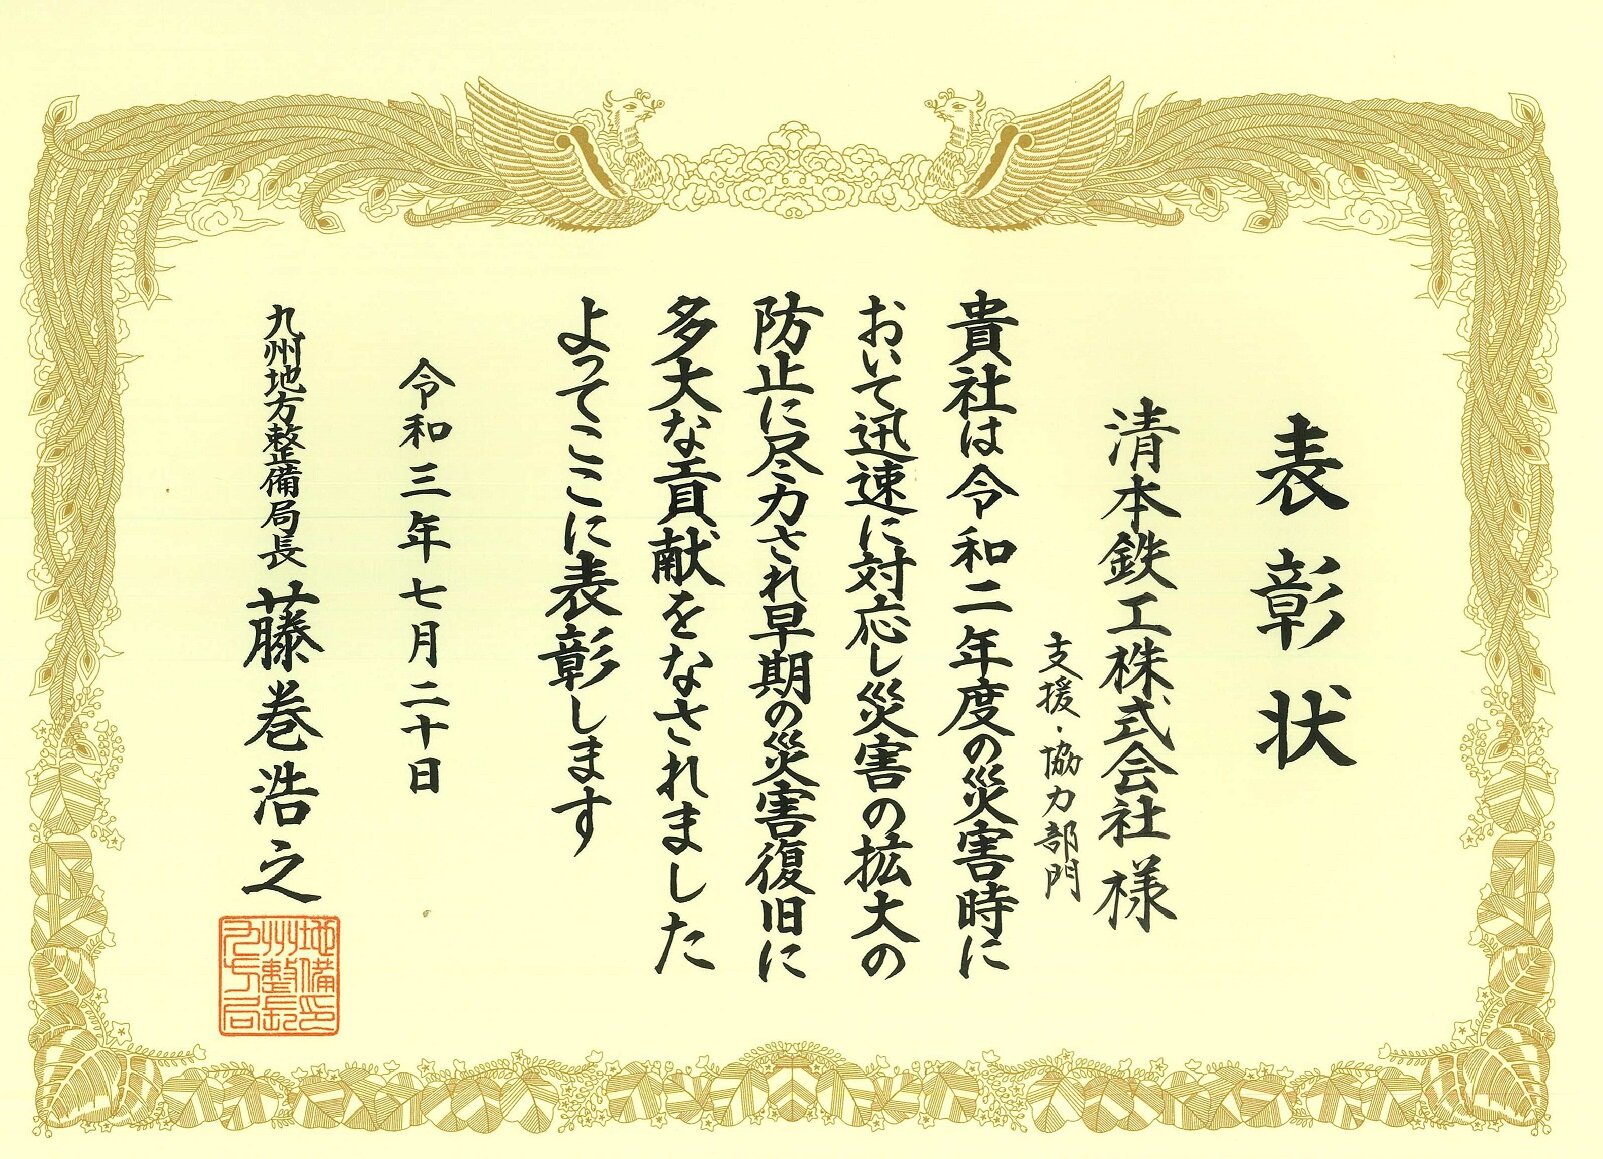 表彰状
清本鉄工株式会社様
支援・協力部門
貴社は令和二年度の災害時に
おいて迅速に対応し災害の拡大の
防止に尽力され早期の災害復旧に
多大な貢献をなされました
よってここに表彰します
令和三年七月二十日
九州地方整備局長 藤巻浩之
九州地方整備局長印